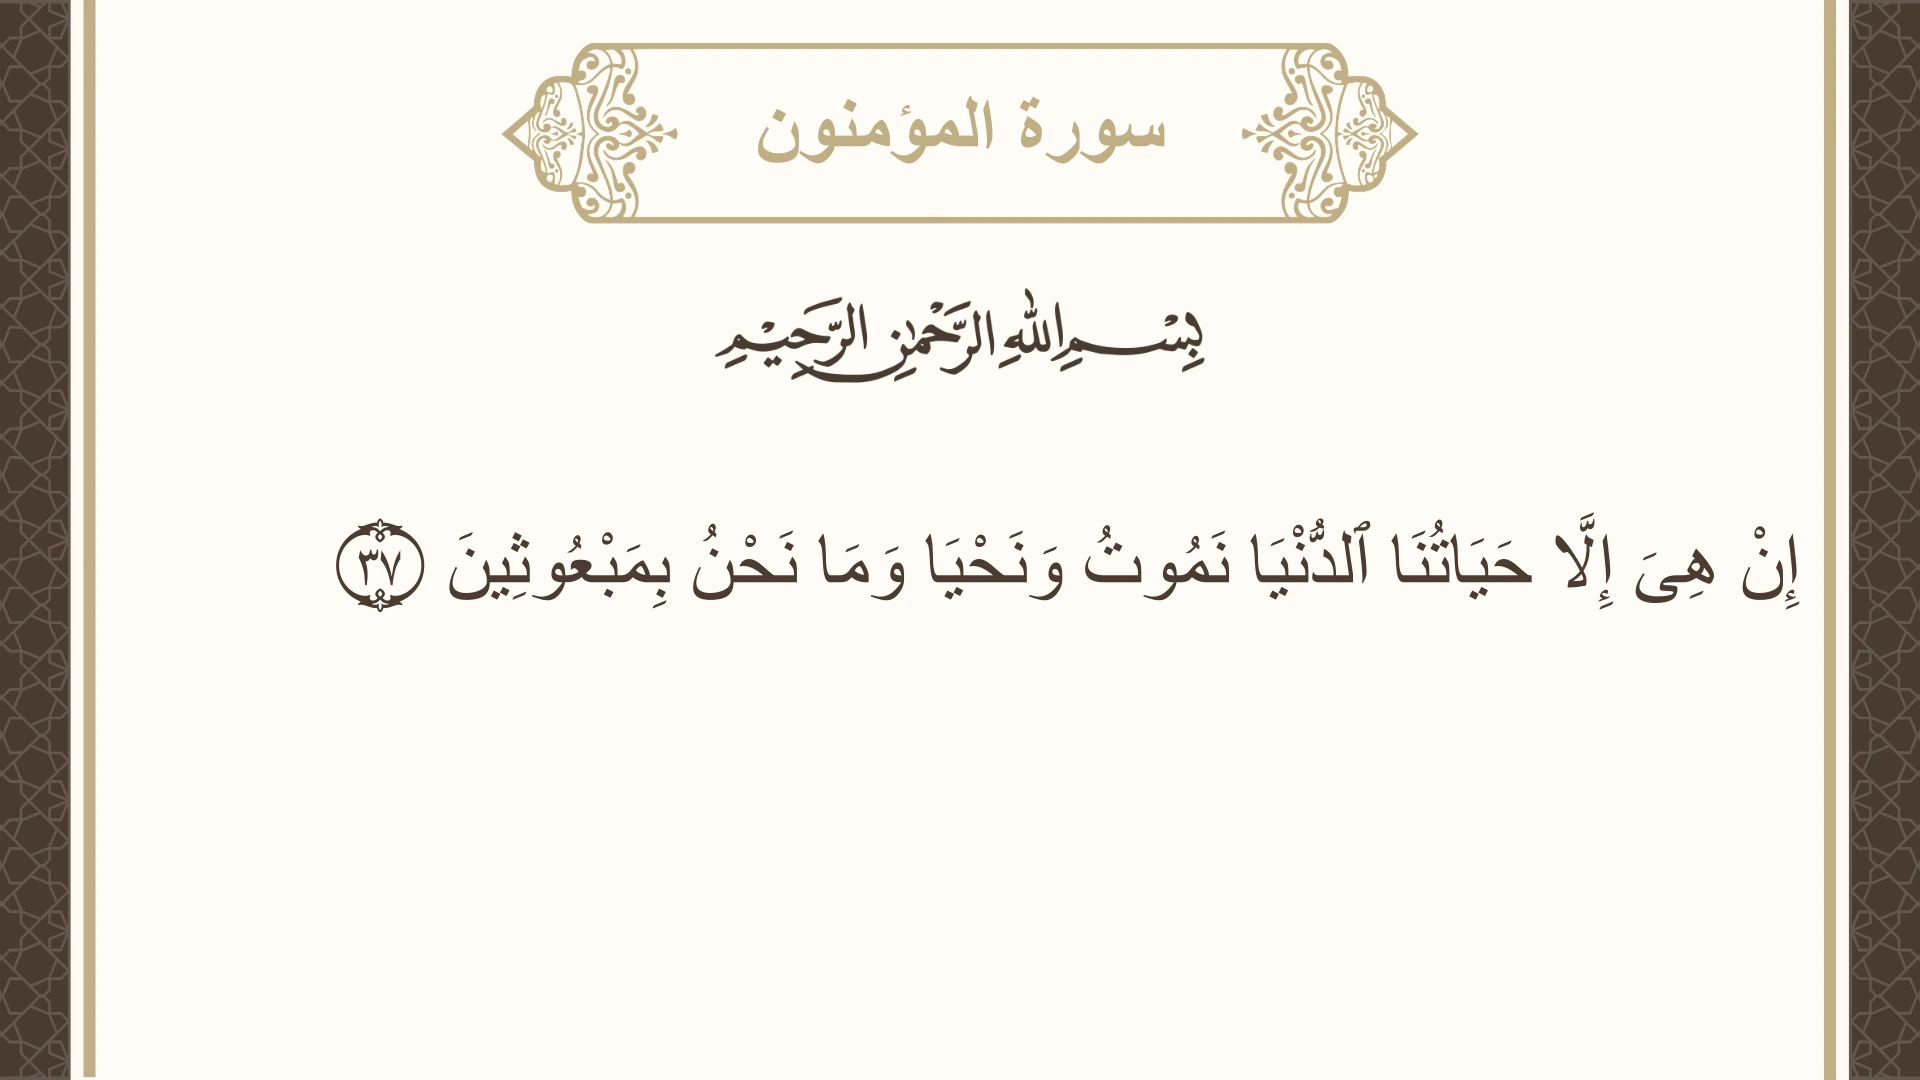 سورة المؤمنون
بِسْمِ اللهِ الرَّحْمٰنِ الرَّحِيْمِ
إِنْ هِىَ إِلَّا حَيَاتُنَا ٱلدُّنْيَا نَمُوتُ وَنَحْيَا وَمَا نَحْنُ بِمَبْعُوثِينَ ٣٧